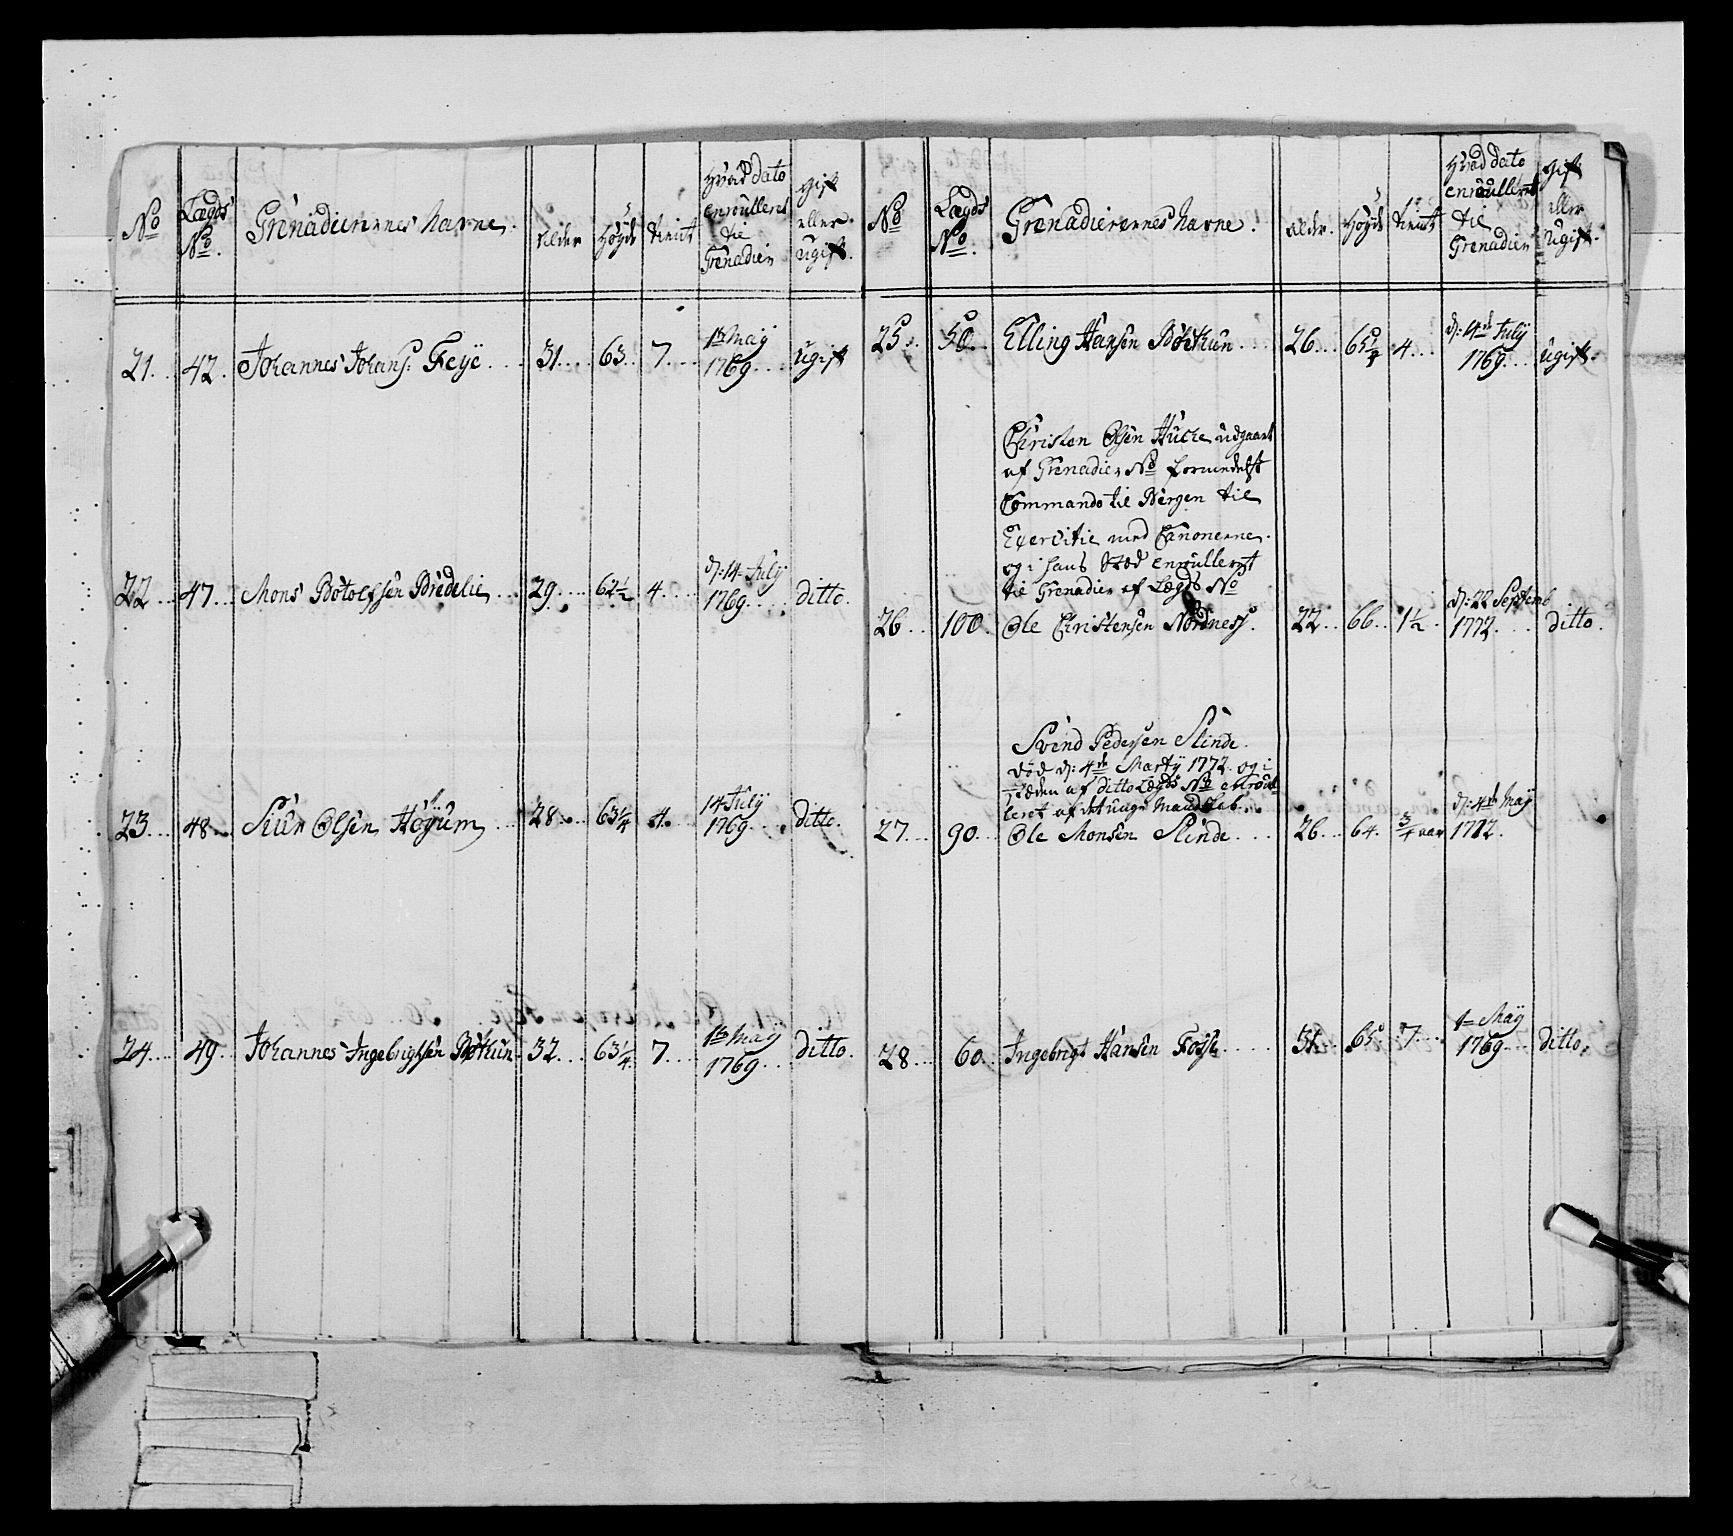 No
Lægds No.
Grenadierernes Navne.
Alder
Høyde
tient
Hvad dato enroulleret til Grenadier
Gift eller ugift.
21. 42. Johannes Johans: Feÿe 31. 63. 7. 1te Maÿ 1769. ugift
22. 47. Mons Botolfsen Bredelie 29. 62½ 4. d: 14 Julÿ 1769. ditto.
23. 48. Siur Olsen Høÿum 28. 63¼ 4. 14 Julÿ 1769. ditto.
24. 49. Johannes Ingebrigtsen Bøthun 32. 63¼ 7. 1te Maÿ 1769. ditto.
No
Lægds No.
Grenadierernes Navne.
Alder.
Høÿde
tient
Hvad dato enroulleret til Grenadier
Gift eller ugift.
25. 50. Elling Hansen Bøthun 26. 65¼ 4. d: 14de Julÿ 1769. ugift.
Christen Olsen Hucle udgaaet
af Grenadier No formedelst
Commando til Bergen til
Exercitie med Canonerne.
og i hans Stæd enroulleret
til Grenadier af Lægds No
26. 100. Ole Christensen Nordnes. 22. 66. 1½. d: 22 Septemb 1772. ditto.
Svend Pedersen Slinde.
død d: 4de Martÿ 1772. og i
stæden af ditto Lægds No enroul
leret af det unge Mandskab.
27. 90. Ole Monsen Slinde 26. 64. ¾ aar d: 4de Maÿ 1772.
28. 60. Ingebrigt Hansen Foÿe 31. 65 7. 1te Maÿ 1769. ditto.